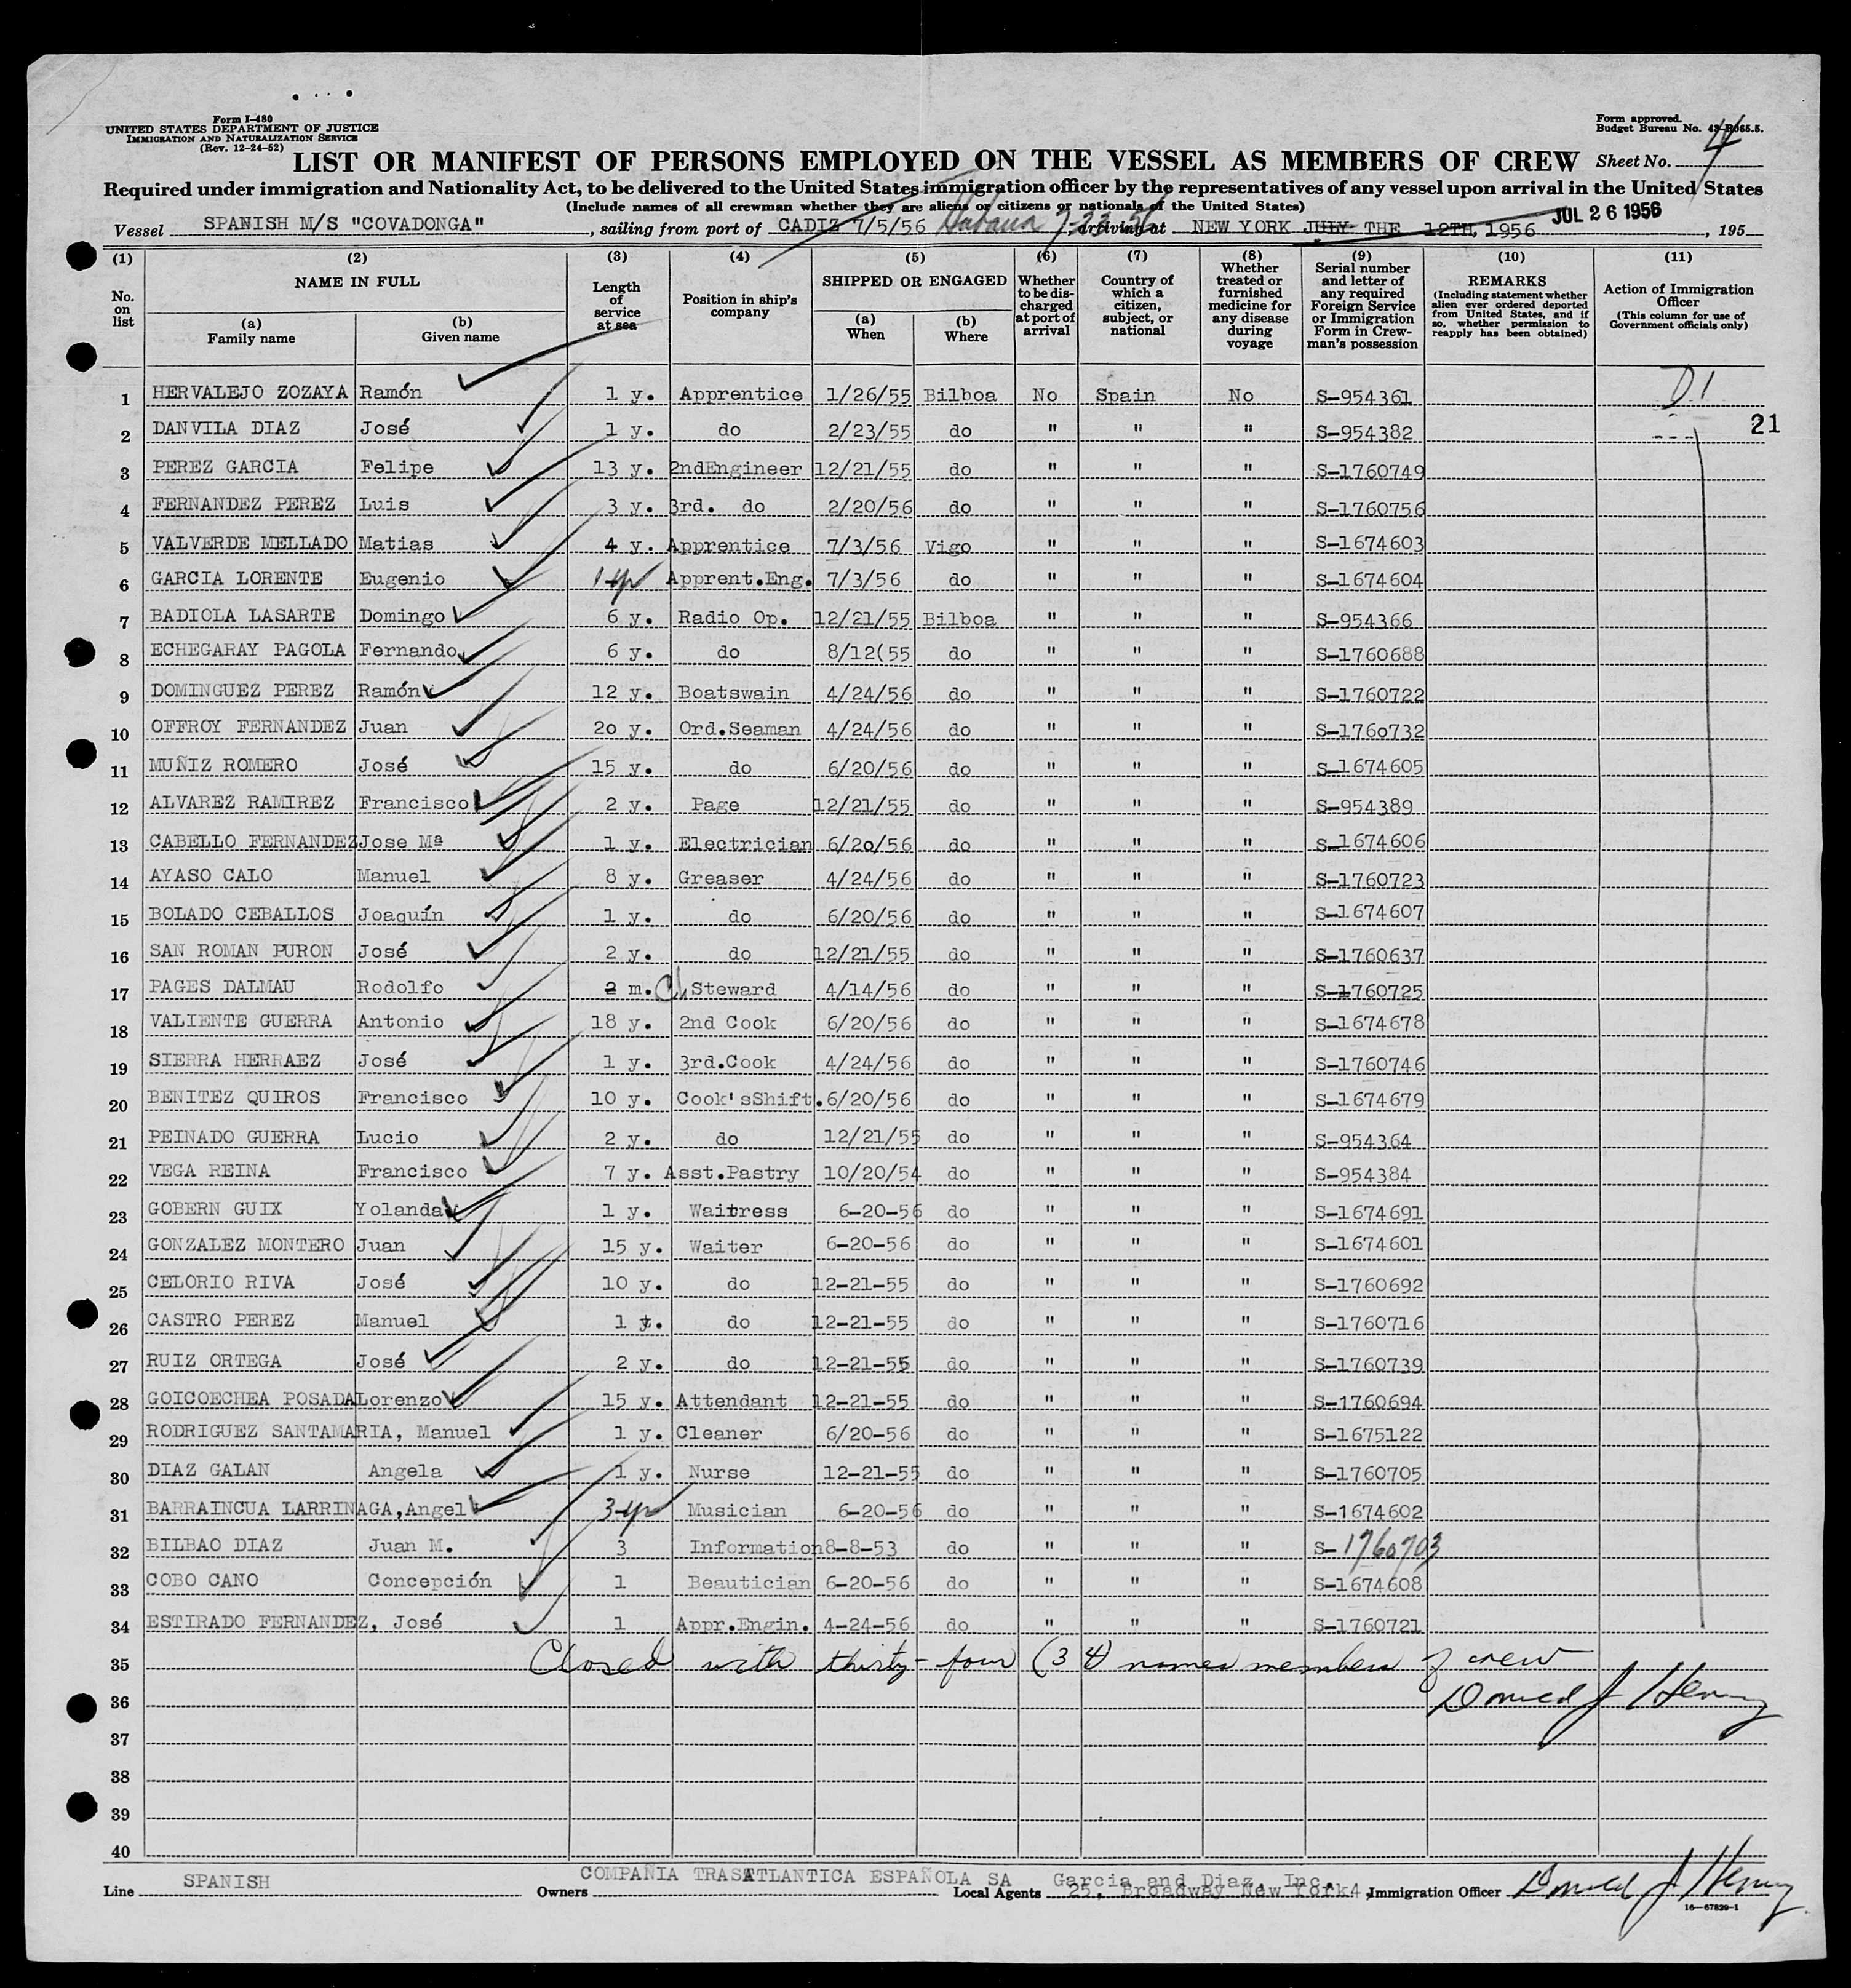 Form I-480
UNITED STATES DEPARTMENT OF JUSTICE
IMMIGRATION AND NATURALIZATION SERVICE
(Rev. 12-24-52)
Form approved.
Budget Bureau No. 43-R065.5.
LIST OR MANIFEST OF PERSONS EMPLOYED ON THE VESSEL AS MEMBERS OF CREW Sheet No. 4
Required under immigration and Nationality Act, to be delivered to the United States immigration officer by the representatives of any vessel upon arrival in the United States
(Include names of all crewman whether they are aliens or citizens or nationals of the United States)
Vessel SPANISH M/S "COVADONGA", sailing from port of CADIZ 7/5/56 Habana 7-23-56, arriving at NEW YORK JULY THE 12TH, 1956 JUL 26 1956, 195
(1) (2) (3) (4) (5) (6) (7) (8) (9) (10) (11)
No. on list
NAME IN FULL
(a) Family name
(b) Given name
Length of service at sea
Position in ship's company
SHIPPED OR ENGAGED
(a) When
(b) Where
Whether to be discharged at port of arrival
Country of which a citizen, subject, or national
Whether treated or furnished medicine for any disease during voyage
Serial number and letter of any required Foreign Service or Immigration Form in Crewman's possession
REMARKS
(Including statement whether alien ever ordered deported from United States, and if so, whether permission to reapply has been obtained)
Action of Immigration Officer
(This column for use of Government officials only)
1 HERVALEJO ZOZAYA Ramón 1 y. Apprentice 1/26/55 Bilboa No Spain No S-954361 D1
2 DANVILA DIAZ José 1 y. do 2/23/55 do " " " S-954382 21
3 PEREZ GARCIA Felipe 13 y. 2ndEngineer 12/21/55 do " " " S-1760749
4 FERNANDEZ PEREZ Luis 3 y. 3rd. do 2/20/56 do " " " S-1760756
5 VALVERDE MELLADO Matias 4 y. Apprentice 7/3/56 Vigo " " " S-1674603
6 GARCIA LORENTE Eugenio 1 yr Apprent.Eng. 7/3/56 do " " " S-1674604
7 BADIOLA LASARTE Domingo 6 y. Radio Op. 12/21/55 Bilboa " " " S-954366
8 ECHEGARAY PAGOLA Fernando 6 y. do 8/12(55 do " " " S-1760688
9 DOMINGUEZ PEREZ Ramón 12 y. Boatswain 4/24/56 do " " " S-1760722
10 OFFROY FERNANDEZ Juan 2o y. Ord.Seaman 4/24/56 do " " " S-176o732
11 MUÑIZ ROMERO José 15 y. do 6/20/56 do " " " S-1674605
12 ALVAREZ RAMIREZ Francisco 2 y. Page 12/21/55 do " " " S-954389
13 CABELLO FERNANDEZ Jose Mª 1 y. Electrician 6/2o/56 do " " " S-1674606
14 AYASO CALO Manuel 8 y. Greaser 4/24/56 do " " " S-1760723
15 BOLADO CEBALLOS Joaquín 1 y. do 6/20/56 do " " " S-1674607
16 SAN ROMAN PURON José 2 y. do 12/21/55 do " " " S-1760637
17 PAGES DALMAU Rodolfo 2 m. Ch Steward 4/14/56 do " " " S-1760725
18 VALIENTE GUERRA Antonio 18 y. 2nd Cook 6/20/56 do " " " S-1674678
19 SIERRA HERRAEZ José 1 y. 3rd.Cook 4/24/56 do " " " S-1760746
20 BENITEZ QUIROS Francisco 10 y. Cook'sShift. 6/20/56 do " " " S-1674679
21 PEINADO GUERRA Lucio 2 y. do 12/21/55 do " " " S-954364
22 VEGA REINA Francisco 7 y. Asst.Pastry 10/20/54 do " " " S-954384
23 GOBERN GUIX Yolanda 1 y. Waitress 6-20-56 do " " " S-1674691
24 GONZALEZ MONTERO Juan 15 y. Waiter 6-20-56 do " " " S-1674601
25 CELORIO RIVA José 10 y. do 12-21-55 do " " " S-1760692
26 CASTRO PEREZ Manuel 1 y. do 12-21-55 do " " " S-1760716
27 RUIZ ORTEGA José 2 y. do 12-21-55 do " " " S-1760739
28 GOICOECHEA POSADA Lorenzo 15 y. Attendant 12-21-55 do " " " S-1760694
29 RODRIGUEZ SANTAMARIA, Manuel 1 y. Cleaner 6/20-56 do " " " S-1675122
30 DIAZ GALAN Angela 1 y. Nurse 12-21-55 do " " " S-1760705
31 BARRAINCUA LARRINAGA, Angel 3 yr Musician 6-20-56 do " " " S-1674602
32 BILBAO DIAZ Juan M. 3 Information 8-8-53 do " " " S-1760703
33 COBO CANO Concepción 1 Beautician 6-20-56 do " " " S-1674608
34 ESTIRADO FERNANDEZ, José 1 Appr.Engin. 4-24-56 do " " " S-1760721
35 Closed with thirty-four (34) names members of crew
36 Donald J Henry
37
38
39
40
Line SPANISH Owners COMPAÑIA TRASATLANTICA ESPAÑOLA SA Local Agents Garcia and Diaz, Inc. 25, Broadway New York4, Immigration Officer Donald J Henry
16-67829-1